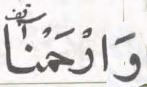 وَارْحَمْنَا